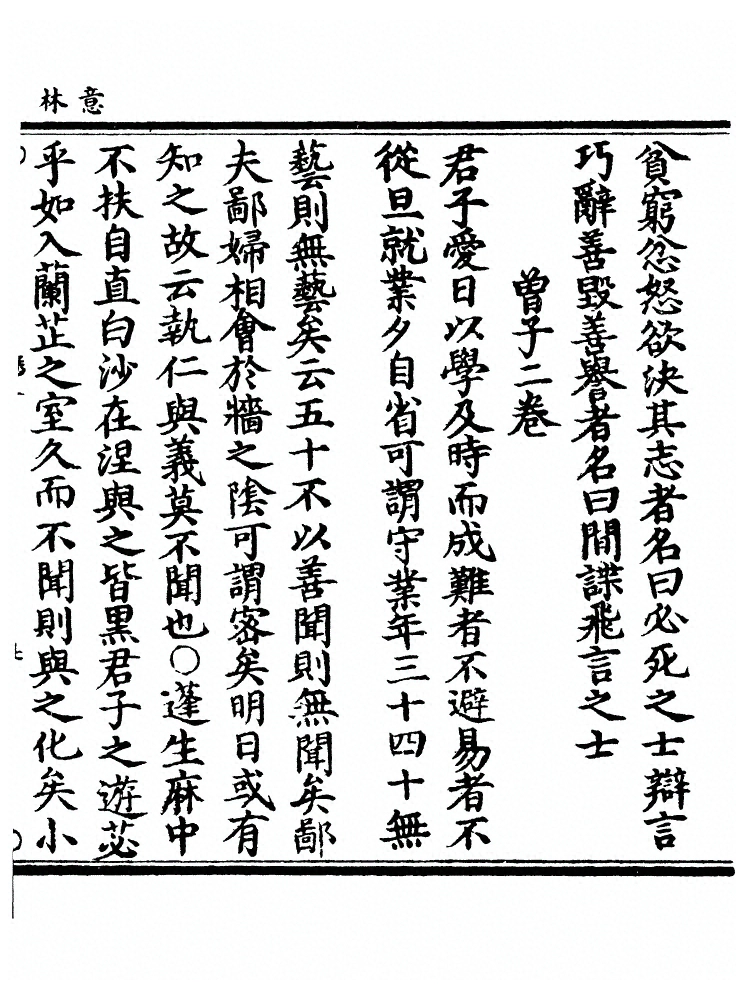 意林
貧窮忿怒欲決其志者名曰必死之士辯言
巧辭善毀善譽者名曰間諜飛言之士
曾子二卷
君子愛日以學及時而成難者不避易者不
從旦就業夕自省可謂守業年三十四十無
藝則無藝矣云五十不以善聞則無聞矣鄙
夫鄙婦相會於牆之陰可謂密矣明日或有
知之故云執仁與義莫不聞也〇蓬生麻中
不扶自直白沙在涅與之皆黑君子之遊苾
乎如入蘭芷之室久而不聞則與之化矣小